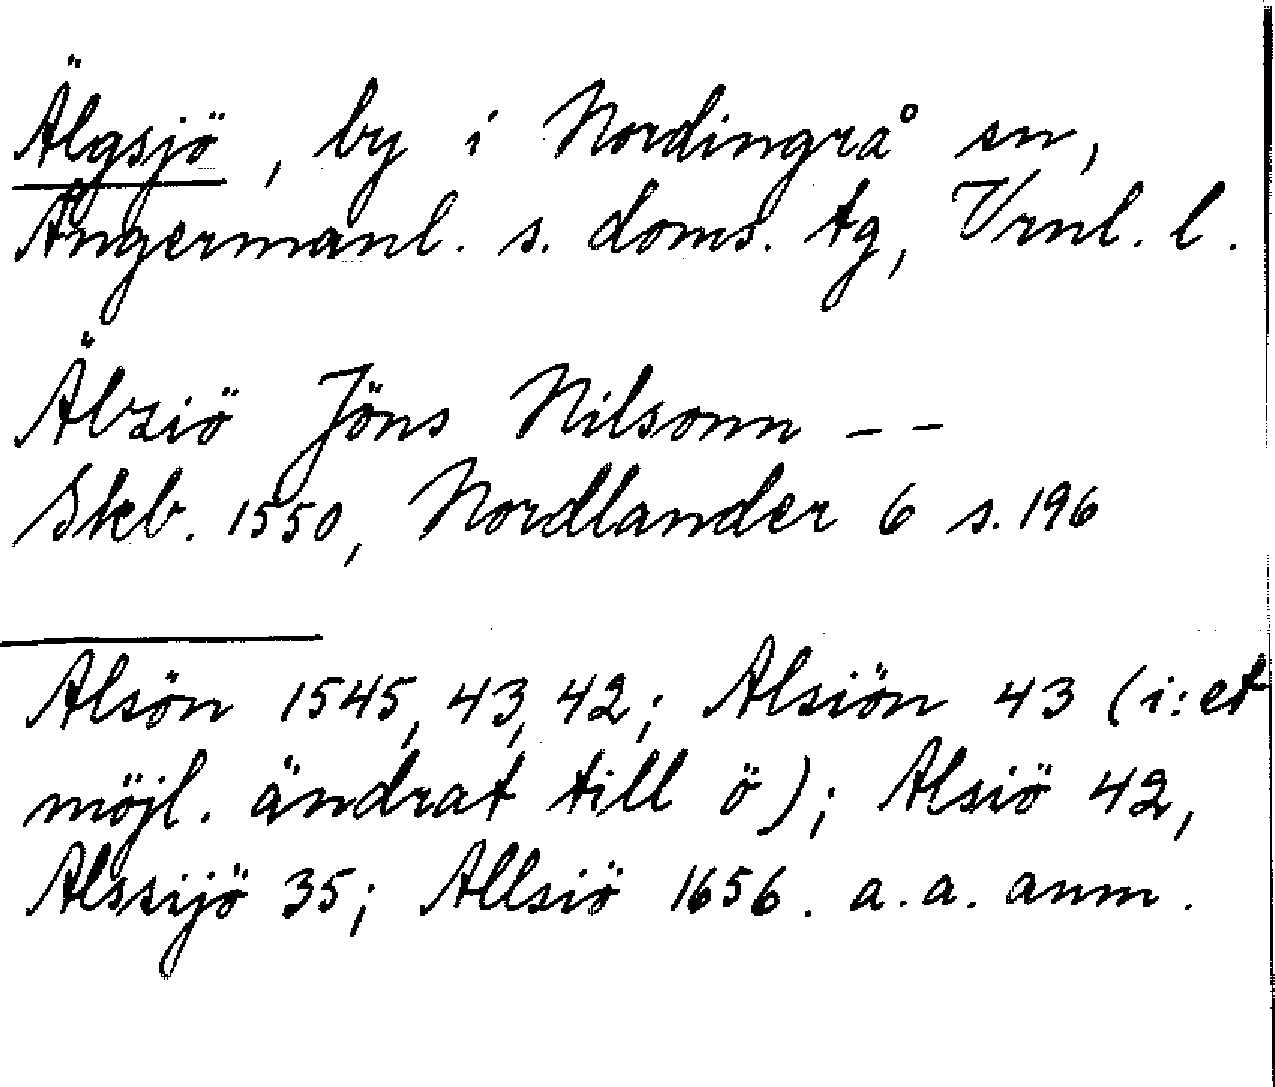 Älgsjö, by i Nordingrå sn,
Ångermanl. s. doms. tg, Vrnl. l.
Älzsiö Jöns Nilsonn – –
Skb. 1550, Nordlander 6 s. 196
Alsön 1545, 43, 42; Alsiön 43 (i:et
möjl. ändrat till ö); Alsiö 42,
Alssijö 35; Allsiö 1656. a. a. anm.